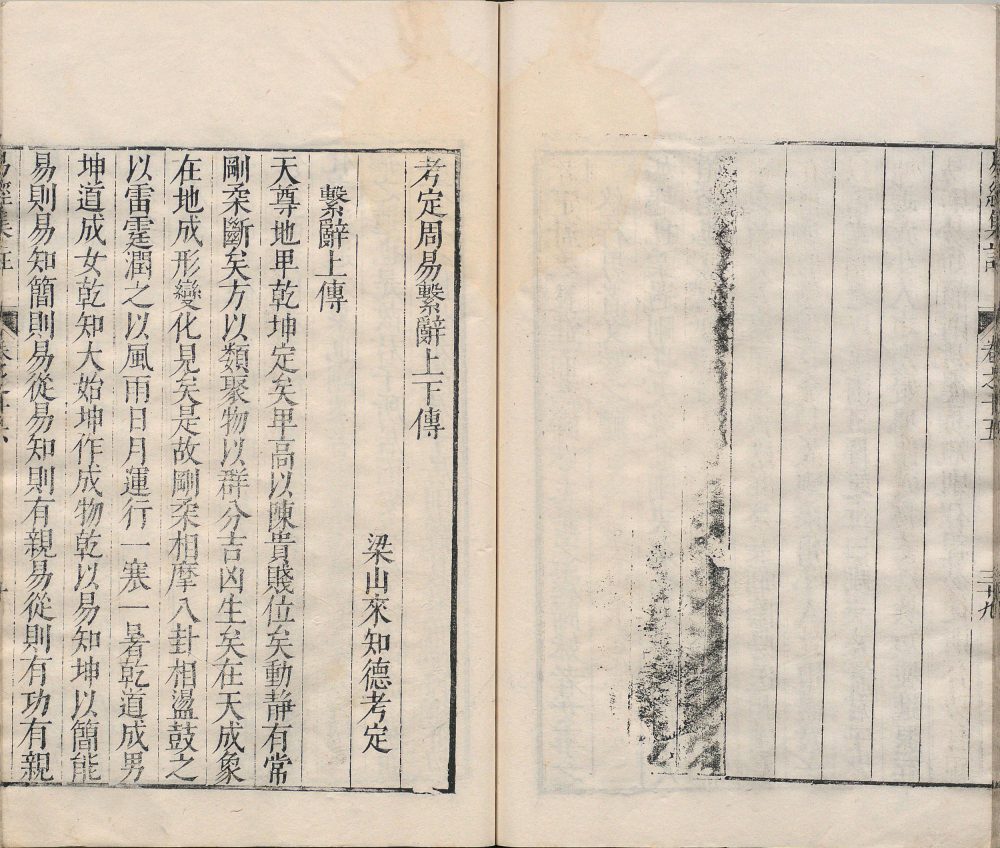 卷之十五
三十九
考定周易繫辭上下傳
梁山來知德考定
繫辭上傳
天尊地卑乾坤定矣卑高以陳貴賤位矣動靜有常
剛柔斷矣方以類聚物以群分吉凶生矣在天成象
在地成形變化見矣是故剛柔相摩八卦相盪鼓之
以雷霆潤之以風雨日月運行一寒一暑乾道成男
坤道成女乾知大始坤作成物乾以易知坤以簡能
易則易知簡則易從易知則有親易從則有功有親
易經集註